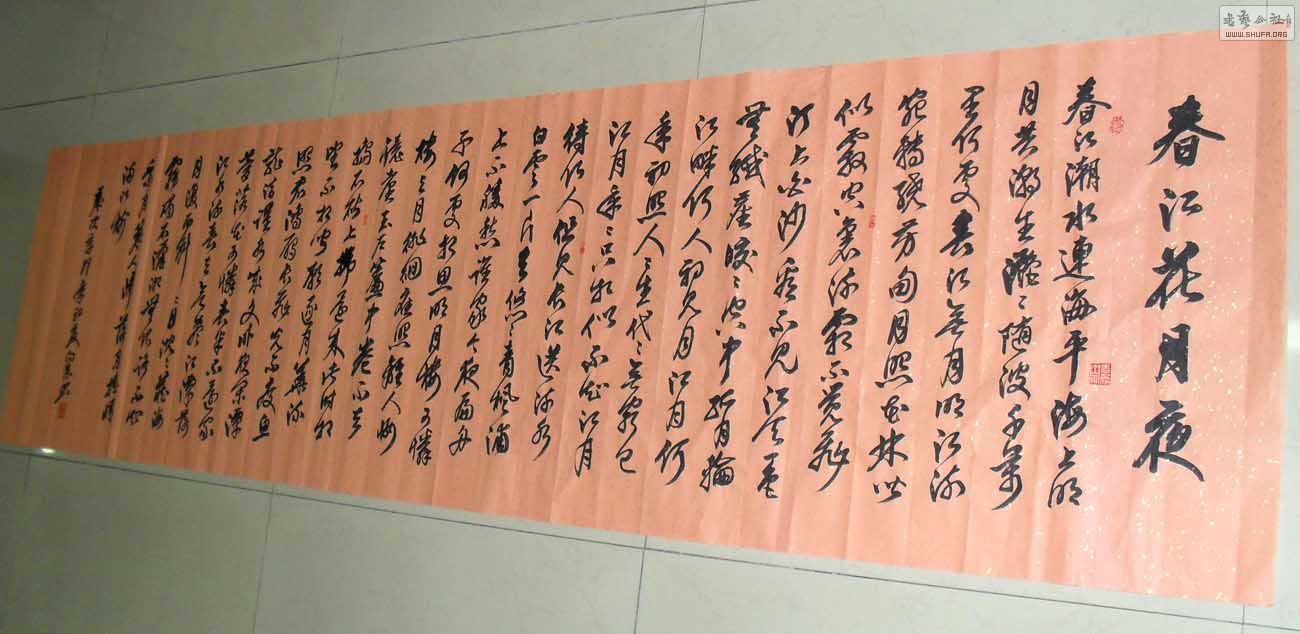 春江花月夜
春江潮水連海平海上明
月共潮生灩灩随波千萬
里何處春江無月明江流
宛轉繞芳甸月照花林皆
似霰空裏流霜不覺飛
汀上白沙看不見江天一色
無纖塵皎皎空中孤月輪
江畔何人初見月江月何
年初照人人生代代無窮已
江月年年只相似不知江月
待何人但見長江送流水
白雲一片去悠悠青楓浦
上不勝愁誰家今夜扁舟
子何處相思明月樓可憐
樓上月徘徊應照離人妝
鏡臺玉户簾中卷不去
擣衣砧上拂還來此時相
望不相聞願逐月華流
照君鴻雁長飛光不度魚
龍潛躍水成文昨夜閑潭
夢落花可憐春半不還家
江水流春去欲盡江潭落
月復西斜斜月沉沉藏海
霧碣石瀟湘無限路不知
乘月幾人歸落月摇情
滿江樹
WWW.SHUFA.ORG